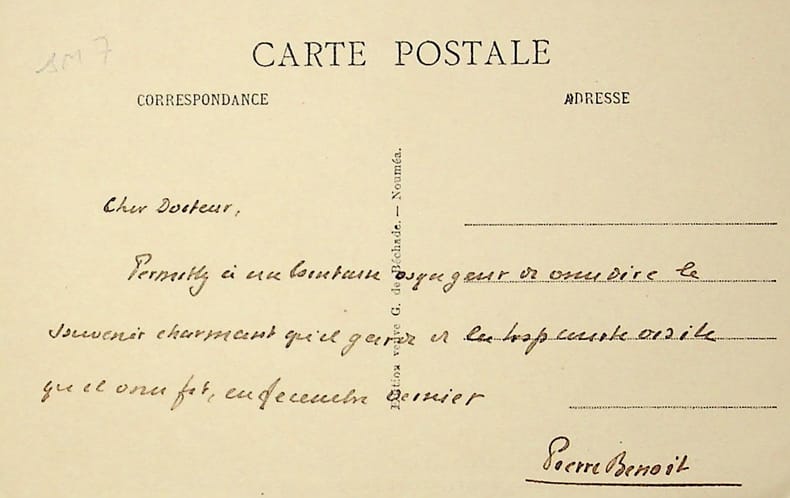 SM 7
CARTE POSTALE
CORRESPONDANCE
ADRESSE
Edition veuve G. de Béchade. — Nouméa.
Cher Docteur,
Permettez à un lointain voyageur de vous dire le
souvenir charmant qu'il garde de la trop courte visite
qu'il vous fit, en décembre dernier
Pierre Benoit